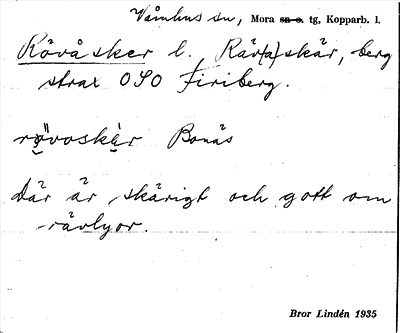 Våmhus sn, Mora sn o. tg, Kopparb. l.
Rövåsker l. Räv(a)skär, berg
strax OSO Firiberg.
rövoskèr Bonäs
Där är skärigt och gott om
rävlyor.
Bror Lindén 1935